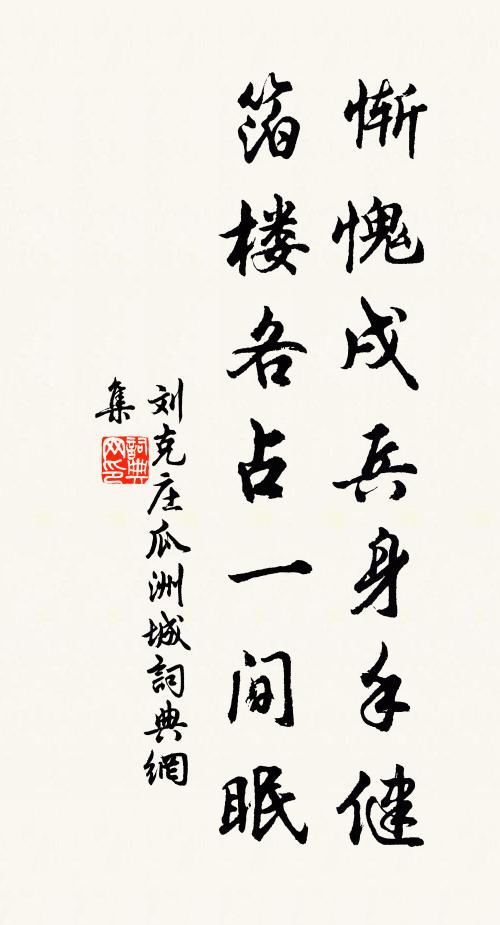 惭愧戍兵身手健
箔楼各占一间眠
刘克庄瓜洲城詞典網
集
詞典
网印